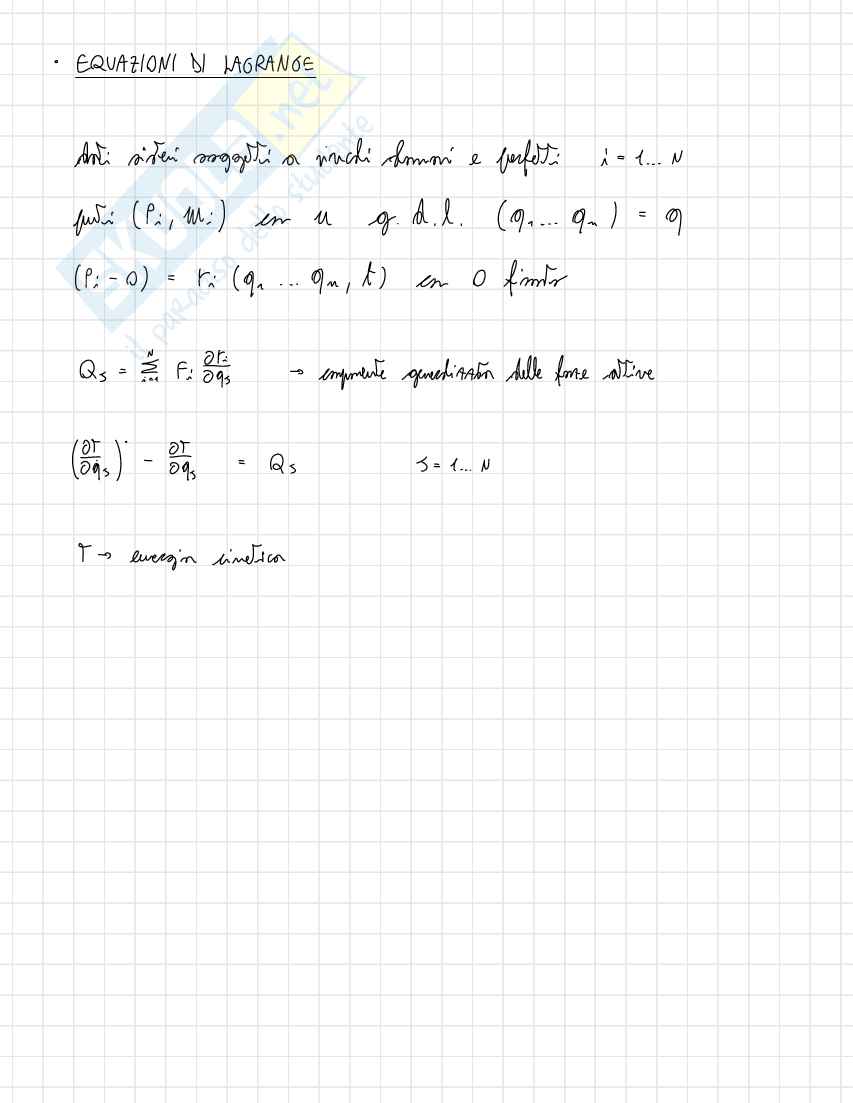 · EQUAZIONI DI LAGRANGE
Dati sistemi soggetti a vincoli olonomi e perfetti i = 1... N
punti (Pi, mi) con n g.d.l. (q1 ... qn) = q
(Pi - O) = ri (q1 ... qn, t) con O fissato
Qs = Σ i=1 N Fi ∂ri/∂qs → componente generalizzata delle forze attive
(∂T/∂q̇s)˙ - ∂T/∂qs = Qs s = 1... N
T → energia cinetica
EKUDA.net
il paradiso dello studente